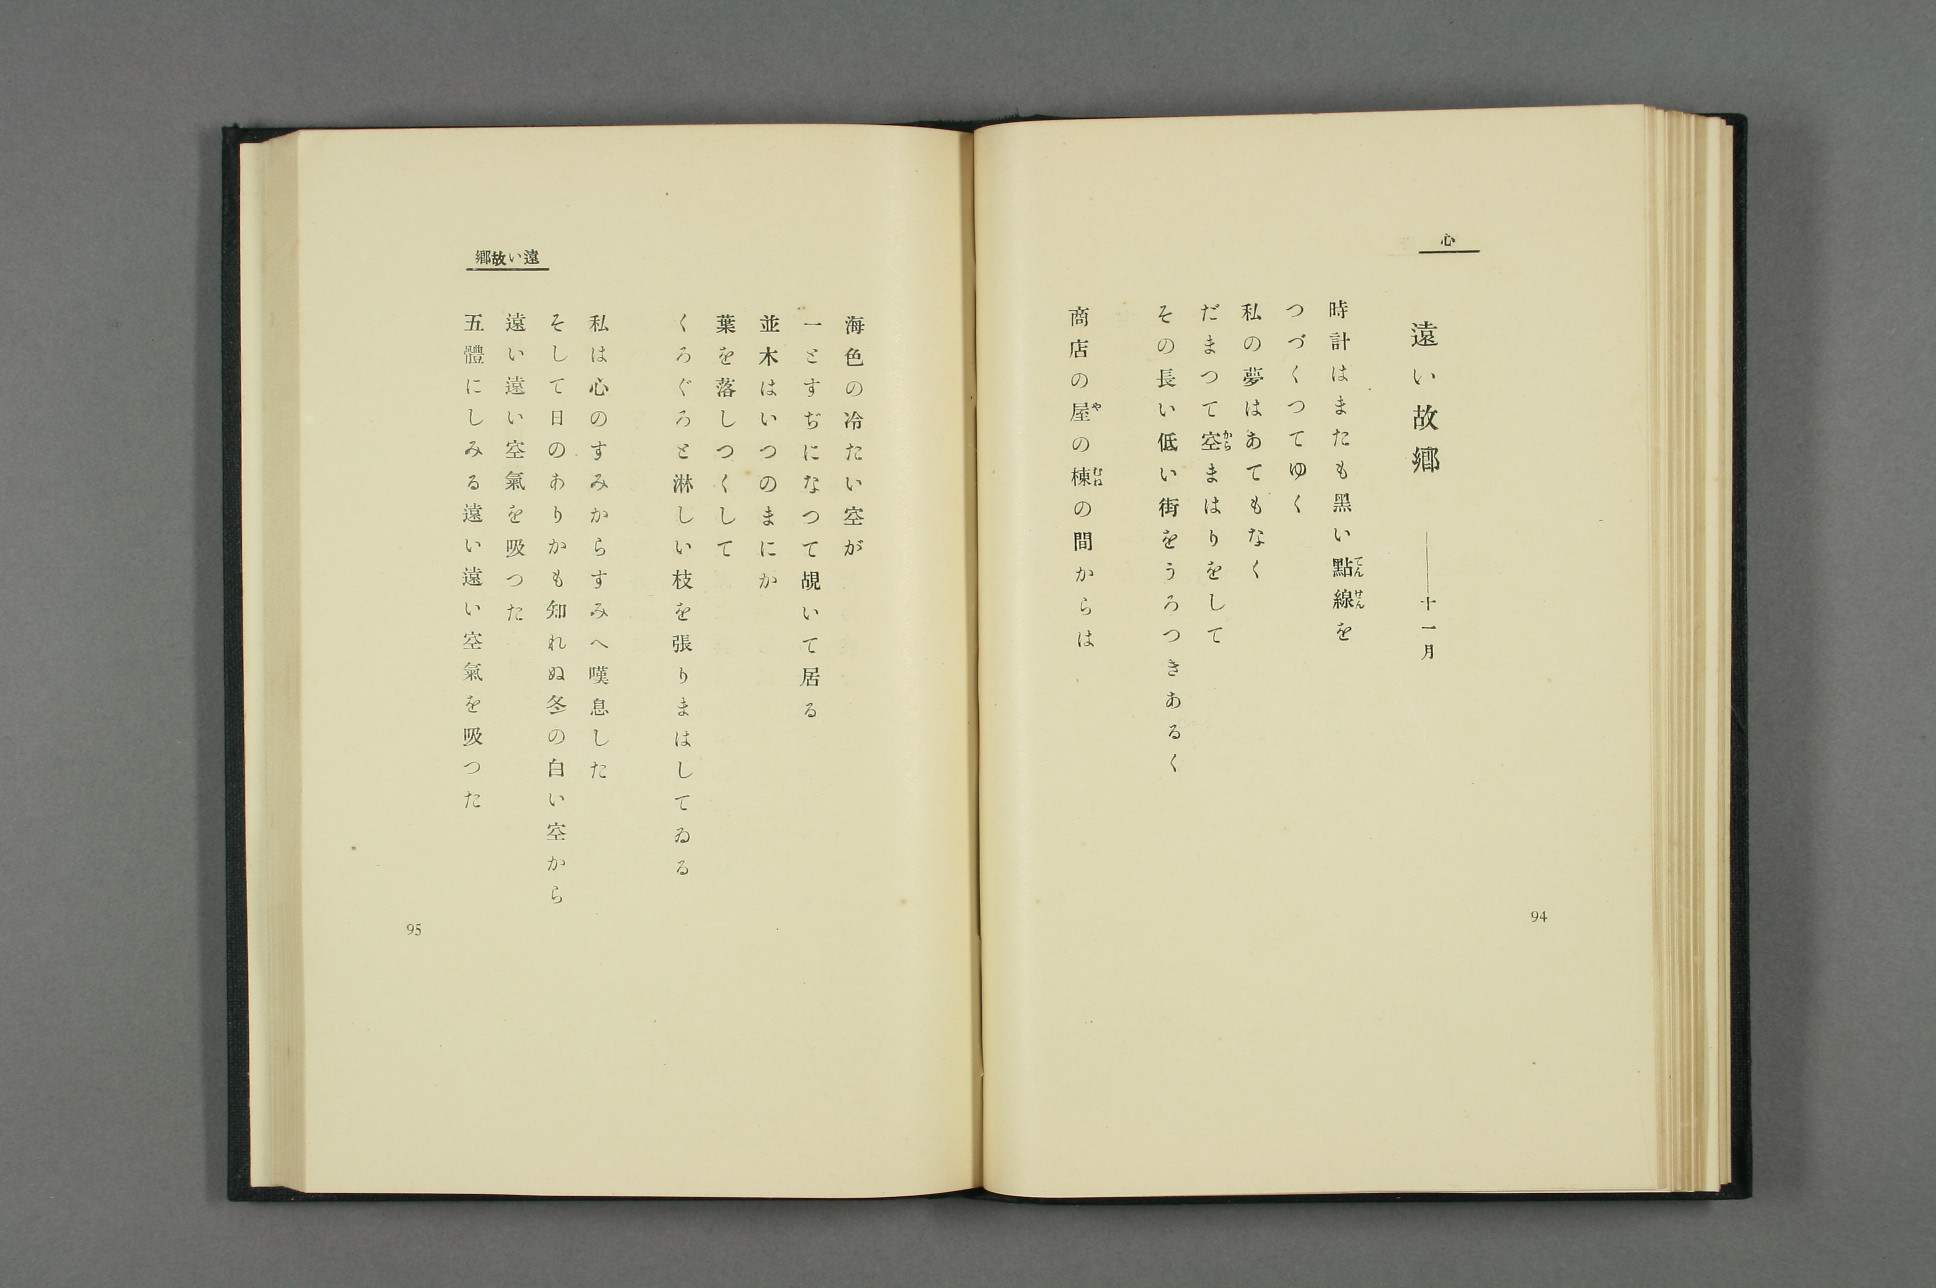 心
遠い故鄕 ――十一月
時計はまたも黑い點線を
てんせん
つづくつてゆく
私の夢はあてもなく
だまつて空まはりをして
から
その長い低い街をうろつきあるく
商店の屋の棟の間からは
や
むね
94
遠い故鄕
海色の冷たい空が
一とすぢになつて覘いて居る
並木はいつのまにか
葉を落しつくして
くろぐろと淋しい枝を張りまはしてゐる
私は心のすみからすみへ嘆息した
そして日のありかも知れぬ冬の白い空から
遠い遠い空氣を吸つた
五體にしみる遠い遠い空氣を吸つた
95